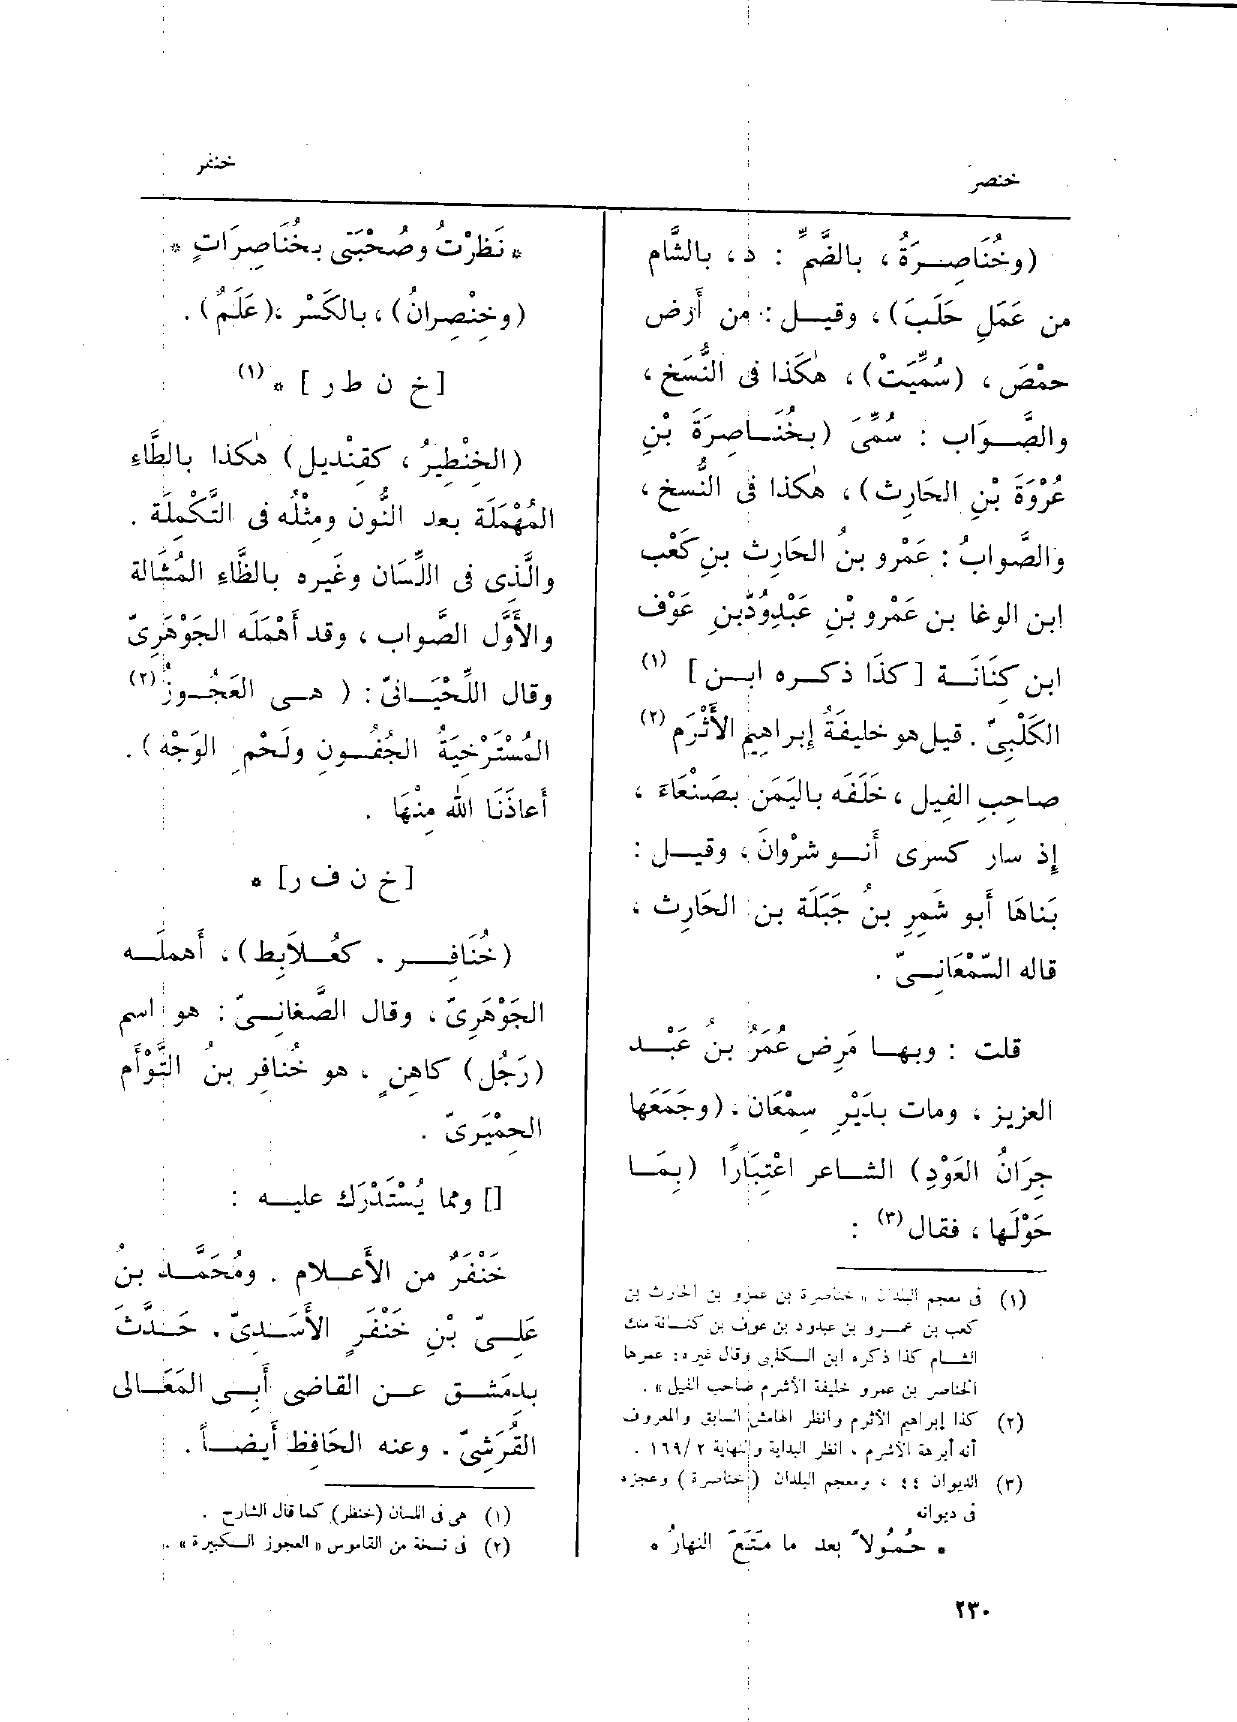 خنصر
خنفر
(وخُنَاصِرَةُ، بالضَّمِّ : د، بالشَّام
من عَمَلِ حَلَبَ)، وقيل : من أَرض
حمْصَ، (سُمِّيَتْ)، هٰكَذا فى النُّسَخ،
والصَّواب : سُمِّىَ (بخُنَاصِرَةَ بْنِ
عُرْوَةَ بْنِ الحَارِث)، هٰكذا فى النُّسخ،
والصَّوابُ : عَمْرو بنُ الحَارِث بنِ كَعْب
ابن الوغا بن عَمْرو بْنِ عَبْدِوُدِّ بنِ عَوْف
ابن كِنَانَة [كذَا ذكره ابن] (١)
الكَلْبِىّ. قيل هو خليفَةُ إبراهيم الأَثْرَم (٢)
صاحِبِ الفِيل، خَلَفَه باليَمَن بصَنْعَاءَ،
إذ سار كسرى أَنو شرْوانَ، وقيل :
بَناهَا أَبو شَمِرِ بنُ جَبَلَة بن الحَارِث،
قاله السّمْعَانىّ .
قلت : وبها مَرِض عُمَرُ بنُ عَبْد
العزيز، ومات بدَيْرِ سِمْعَان. (وجَمَعَها
جِرَانُ العَوْدِ) الشاعر اعْتِبَارًا (بِمَا
حَوْلَها، فقال (٣) :
(١) فى معجم البلدان « خناصرة بن عمرو بن الحارث بن
كعب بن عمرو بن عبدود بن عوف بن كنانة ملك
الشام كذا ذكره ابن الكلبى وقال غيره : عمرها
الخناصر بن عمرو خليفة الأشرم صاحب الفيل ».
(٢) كذا إبراهيم الأثرم وانظر الهامش السابق والمعروف
أنه أبرهة الأشرم، انظر البداية والنهاية ٢/ ١٦٩ .
(٣) الديوان ٤٤، ومعجم البلدان (خناصرة) وعجزه
فى ديوانه
* حُمُولاً بعد ما مَتَعَ النهارُ *
* نَظَرْتُ وصُحْبَتى بخُنَاصِرَاتٍ *
(وخِنْصِرانُ)، بالكَسْر، (عَلَمٌ) .
[خ ن ط ر] * (١)
(الخِنْطِيرُ، كقِنْديل) هٰكذا بالطَّاءِ
المُهْمَلَة بعد النُّون ومثْلُه فى التَّكْمِلَة .
والَّذِى فى اللِّسَان وغَيره بالظَّاءِ المُشَالة
والأَوَّل الصَّواب، وقد أَهْمَلَه الجَوْهَرِىّ
وقال اللِّحْيَانىّ : (هى العَجُوزُ (٢)
المُسْتَرْخِيَةُ الجُفُون ولَحْمِ الوَجْه) .
أَعاذَنَا الله مِنْهَا .
[خ ن ف ر] *
(خُنَافِر. كعُلاَبِط)، أَهملَه
الجَوْهَرِىّ، وقال الصَّغانىّ : هو اسم
(رَجُل) كاهِنٍ، هو خُنافِر بنُ التَّوْأَم
الحِمْيَرىّ .
[] ومما يُسْتَدْرَك عليه :
خَنْفَرٌ من الأَعلام . ومُحَمَّد بنُ
عَلِىّ بْنِ خَنْفَرٍ الأَسَدِىّ. حَدَّثَ
بدمَشْق عن القاضى أَبى المَعَالى
القُرَشِىّ. وعنه الحَافِظ أَيضاً .
(١) هى فى اللسان (خنظر) كما قال الشارح .
(٢) فى نسخة من القاموس « العجوز الكبيرة » .
٢٣٠